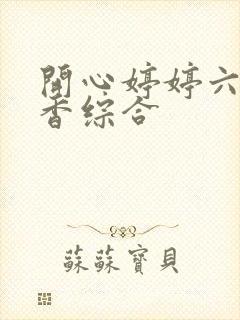 開心婷婷六
香綜合
蘇蘇寶貝